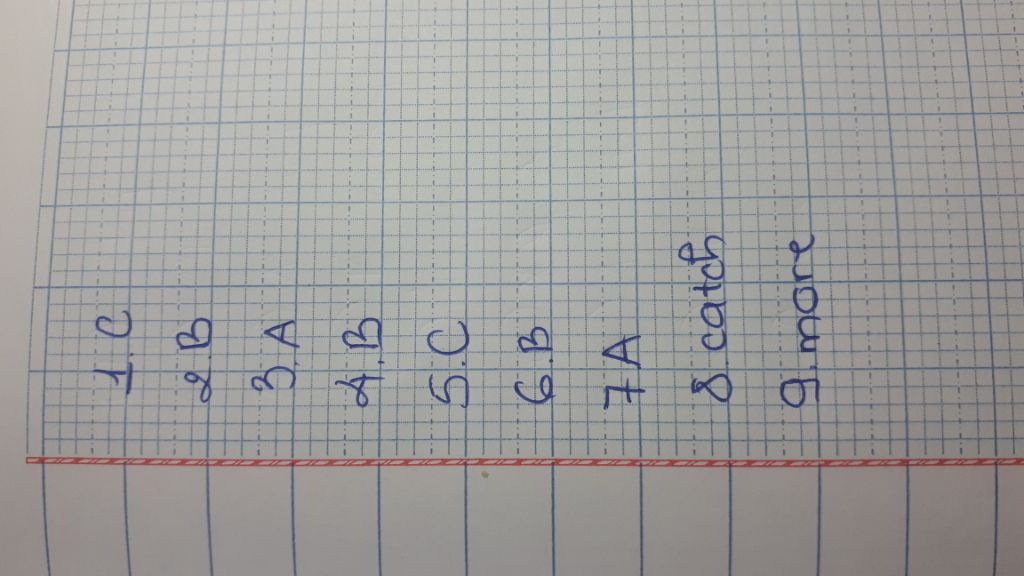 1. C
2. B
3. A
4. B
5. C
6. B
7 A
8. catch
9. more